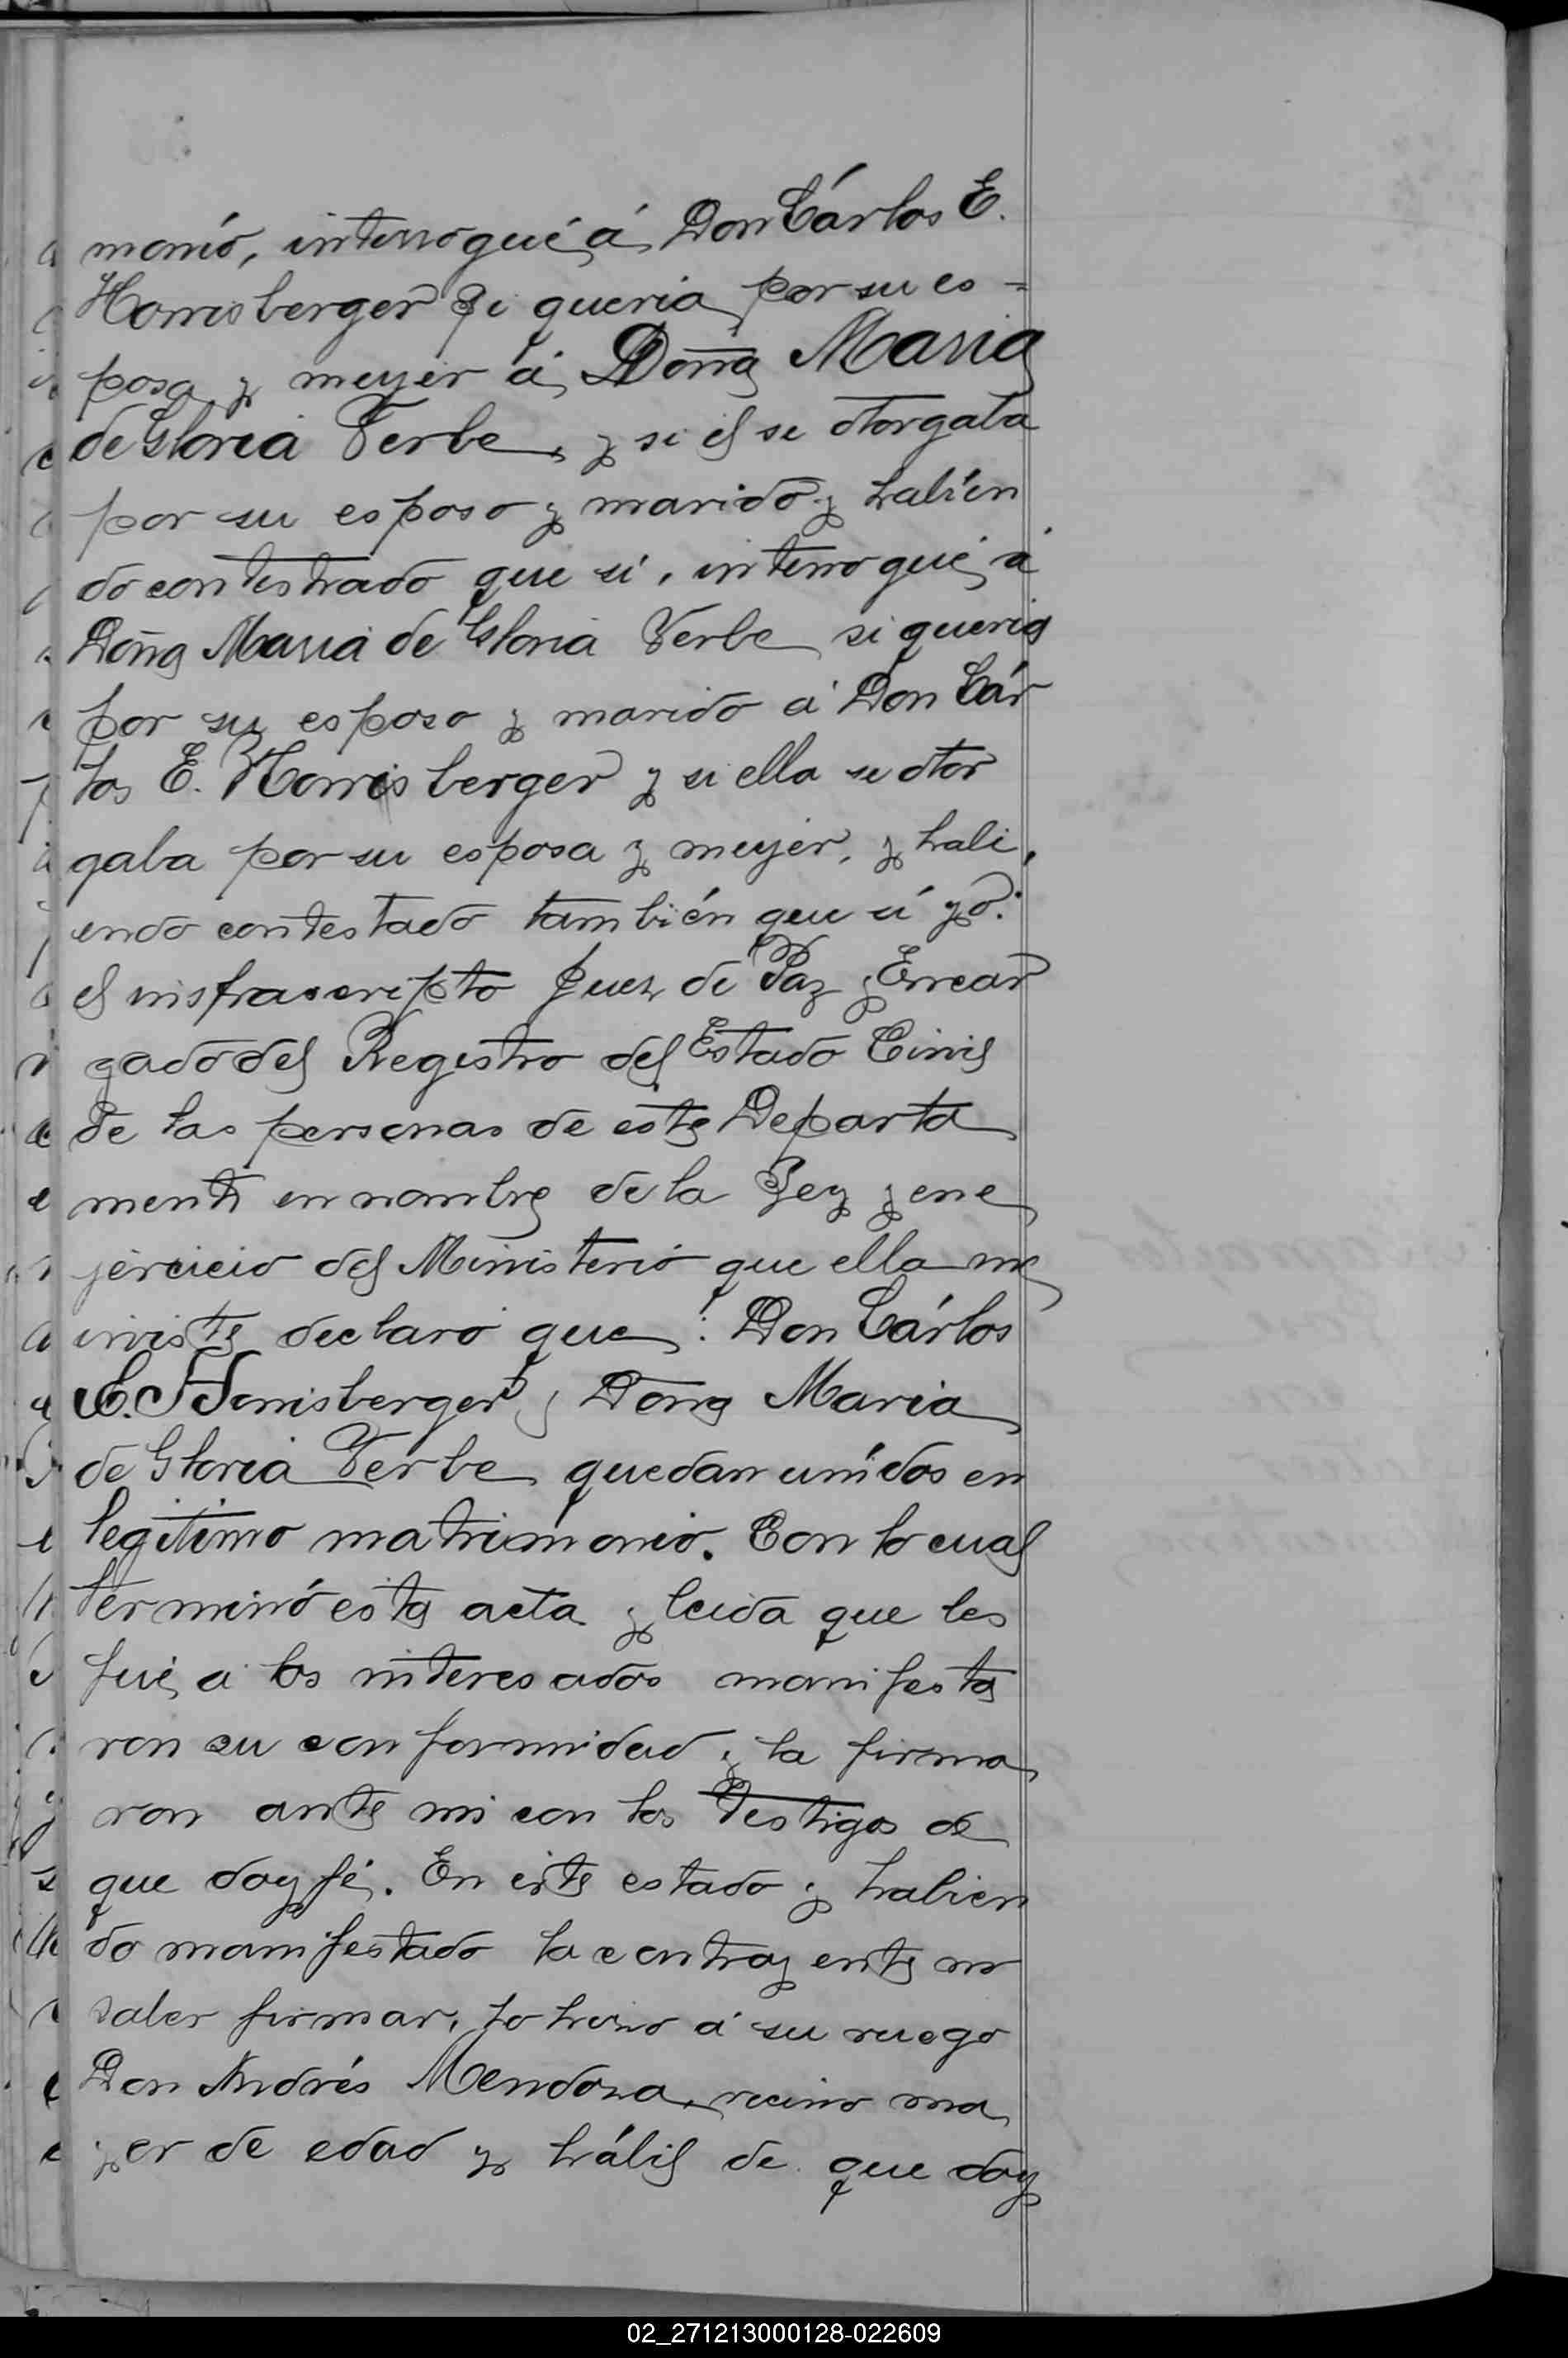 monio, interrogué á Don Cárlos E.
Honisberger si queria por su es-
posa y mujer á Doña Maria
de Gloria Yerbe, y si el se otorgaba
por su esposo y marido y habien
do contestado que si, interrogué á
Doña Maria de Gloria Yerbe si queria
por su esposo y marido á Don Cár
los E. Honisberger y si ella se otor
gaba por su esposa y mujer, y habi,
endo contestado también que si yo:
el infrascripto Juez de Paz y Encar
gado del Registro del Estado Civil
de las personas de este Departa
mento en nombre de la Ley y en e
jercicio del Ministerio que ella me
inviste declaro que: Don Cárlos
E. Honisberger y Doña Maria
de Gloria Yerbe quedan unidos en
legitimo matrimonio. Con lo cual
terminó esta acta y leida que les
fué á los interesados manifesta
ron su conformidad y la firma
ron ante mi con los testigos de
que doy fé. En este estado y habien
do manifestado la contrayente no
saber firmar, lo hizo á su ruego
Don Andrés Mendoza, vecino ma
yor de edad y hábil de que doy
02_271213000128-022609